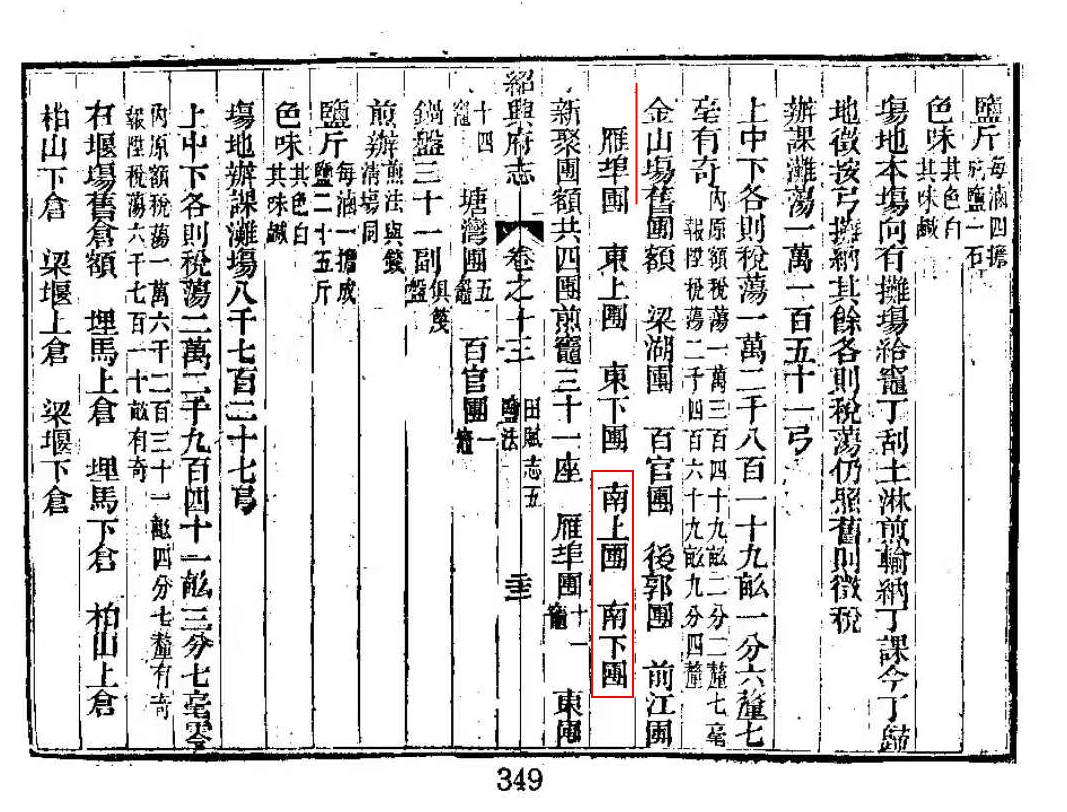 鹽斤每滷四擔
成鹽一石
色味其色白
其味鹹
塲地本塲向有攤塲給竈丁刮土淋煎輸納丁課今丁歸
地徵按弓攤納其餘各則稅蕩仍照舊則徵稅
辦課灘蕩一萬一百五十一弓
上中下各則稅蕩一萬二千八百一十九畝一分六釐七
毫有奇內原額稅蕩一萬三百四十九畝二分二釐七毫
報陞稅蕩二千四百六十九畝九分四釐
金山塲舊團額　梁湖團　百官團　後郭團　前江團
雁埠團　東上團　東下團　南上團　南下團
新聚團額共四團煎竈三十一座　雁埠團十一
竈　東團
紹興府志　卷之十三　田賦志五
鹽法　三十三
十四
竈　塘灣團五
竈　百官團一
竈
鍋盤三十一副俱篾
盤
煎辦煎法與錢
清塲同
鹽斤每滷一擔成
鹽二十五斤
色味其色白
其味鹹
塲地辦課灘塲八千七百二十七弓
上中下各則稅蕩二萬二千九百四十一畝三分七毫零
內原額稅蕩一萬六千二百三十一畝四分七釐有奇
報陞稅蕩六千七百一十畝有奇
石堰塲舊倉額　埋馬上倉　埋馬下倉　柏山上倉
柏山下倉　梁堰上倉　梁堰下倉
349